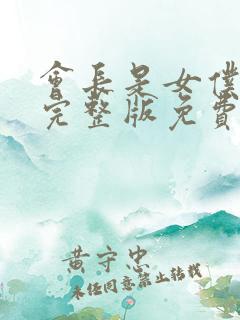 會長是女僕
完整版免費
黃守忠
未經同意禁止轉載